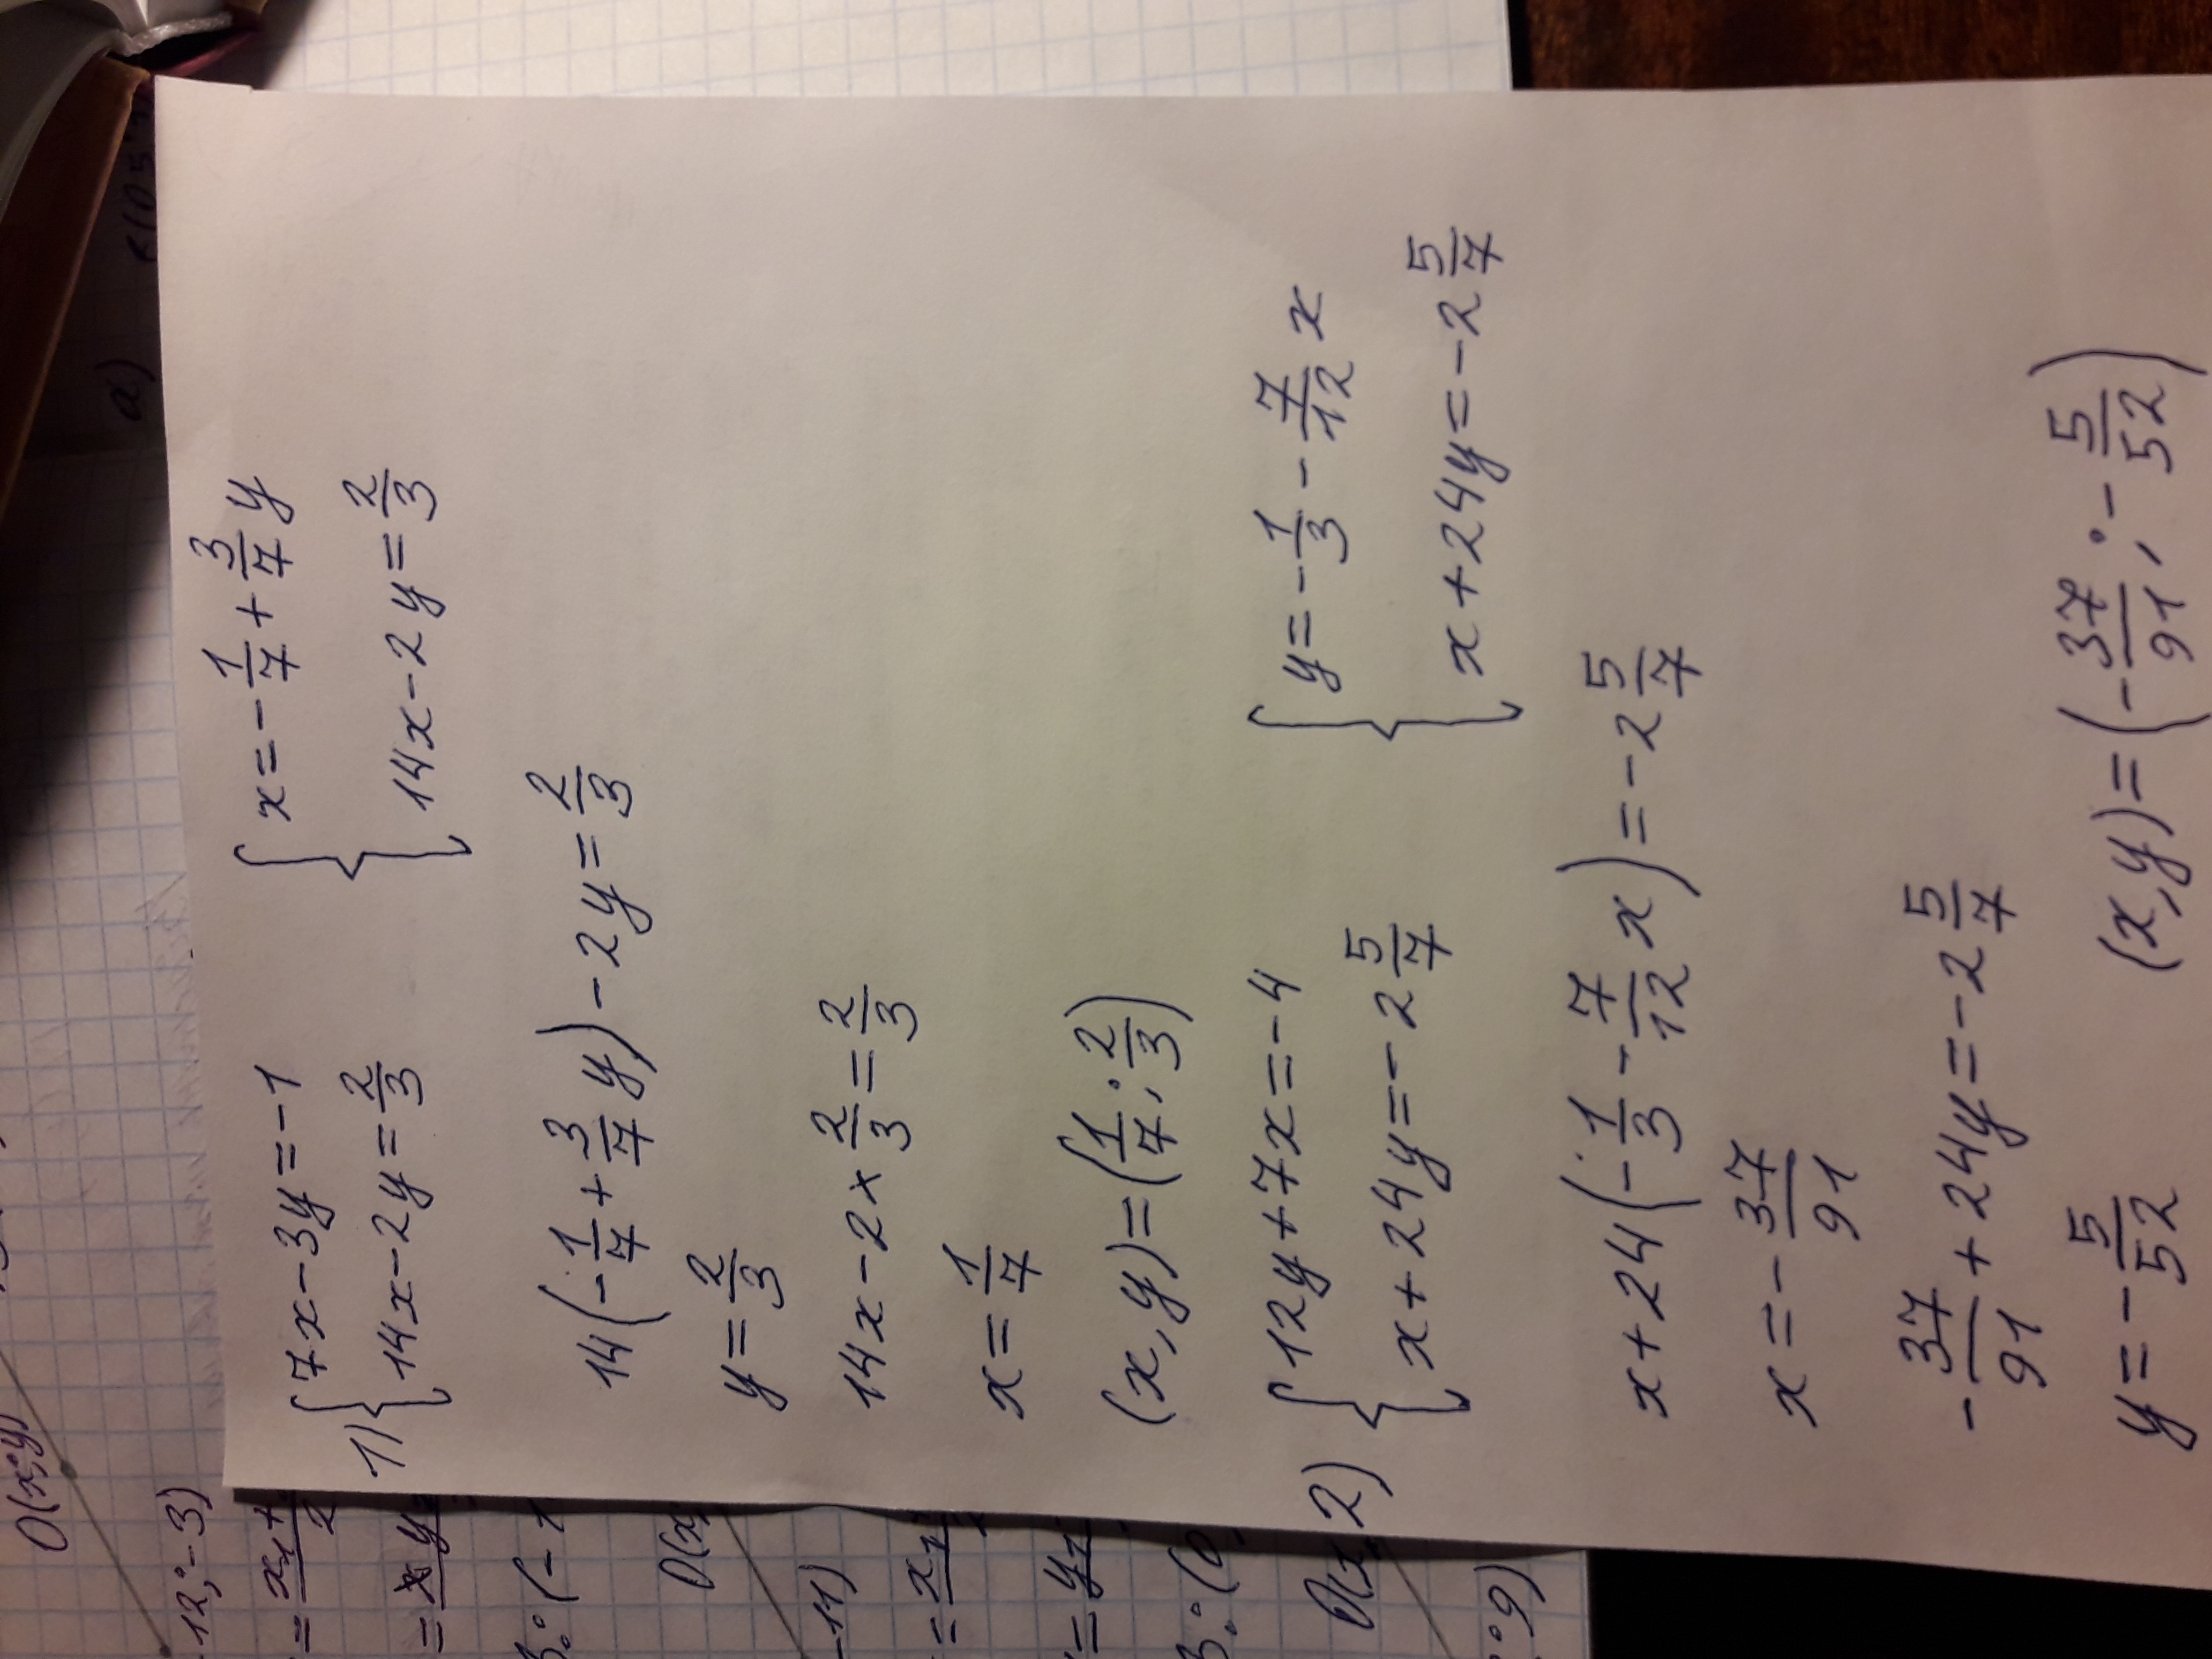 1) { 7x - 3y = -1
14x - 2y = 2/3
{ x = - 1/7 + 3/7 y
14x - 2y = 2/3
14(- 1/7 + 3/7 y) - 2y = 2/3
y = 2/3
14x - 2 × 2/3 = 2/3
x = 1/7
(x, y) = (1/7; 2/3)
2) { 12y + 7x = -4
x + 24y = -2 5/7
{ y = - 1/3 - 7/12 x
x + 24y = -2 5/7
x + 24(- 1/3 - 7/12 x) = -2 5/7
x = - 37/91
- 37/91 + 24y = -2 5/7
y = - 5/52
(x, y) = (- 37/91; - 5/52)
a)
O(x;y)
12; -3)
-11)
;9)